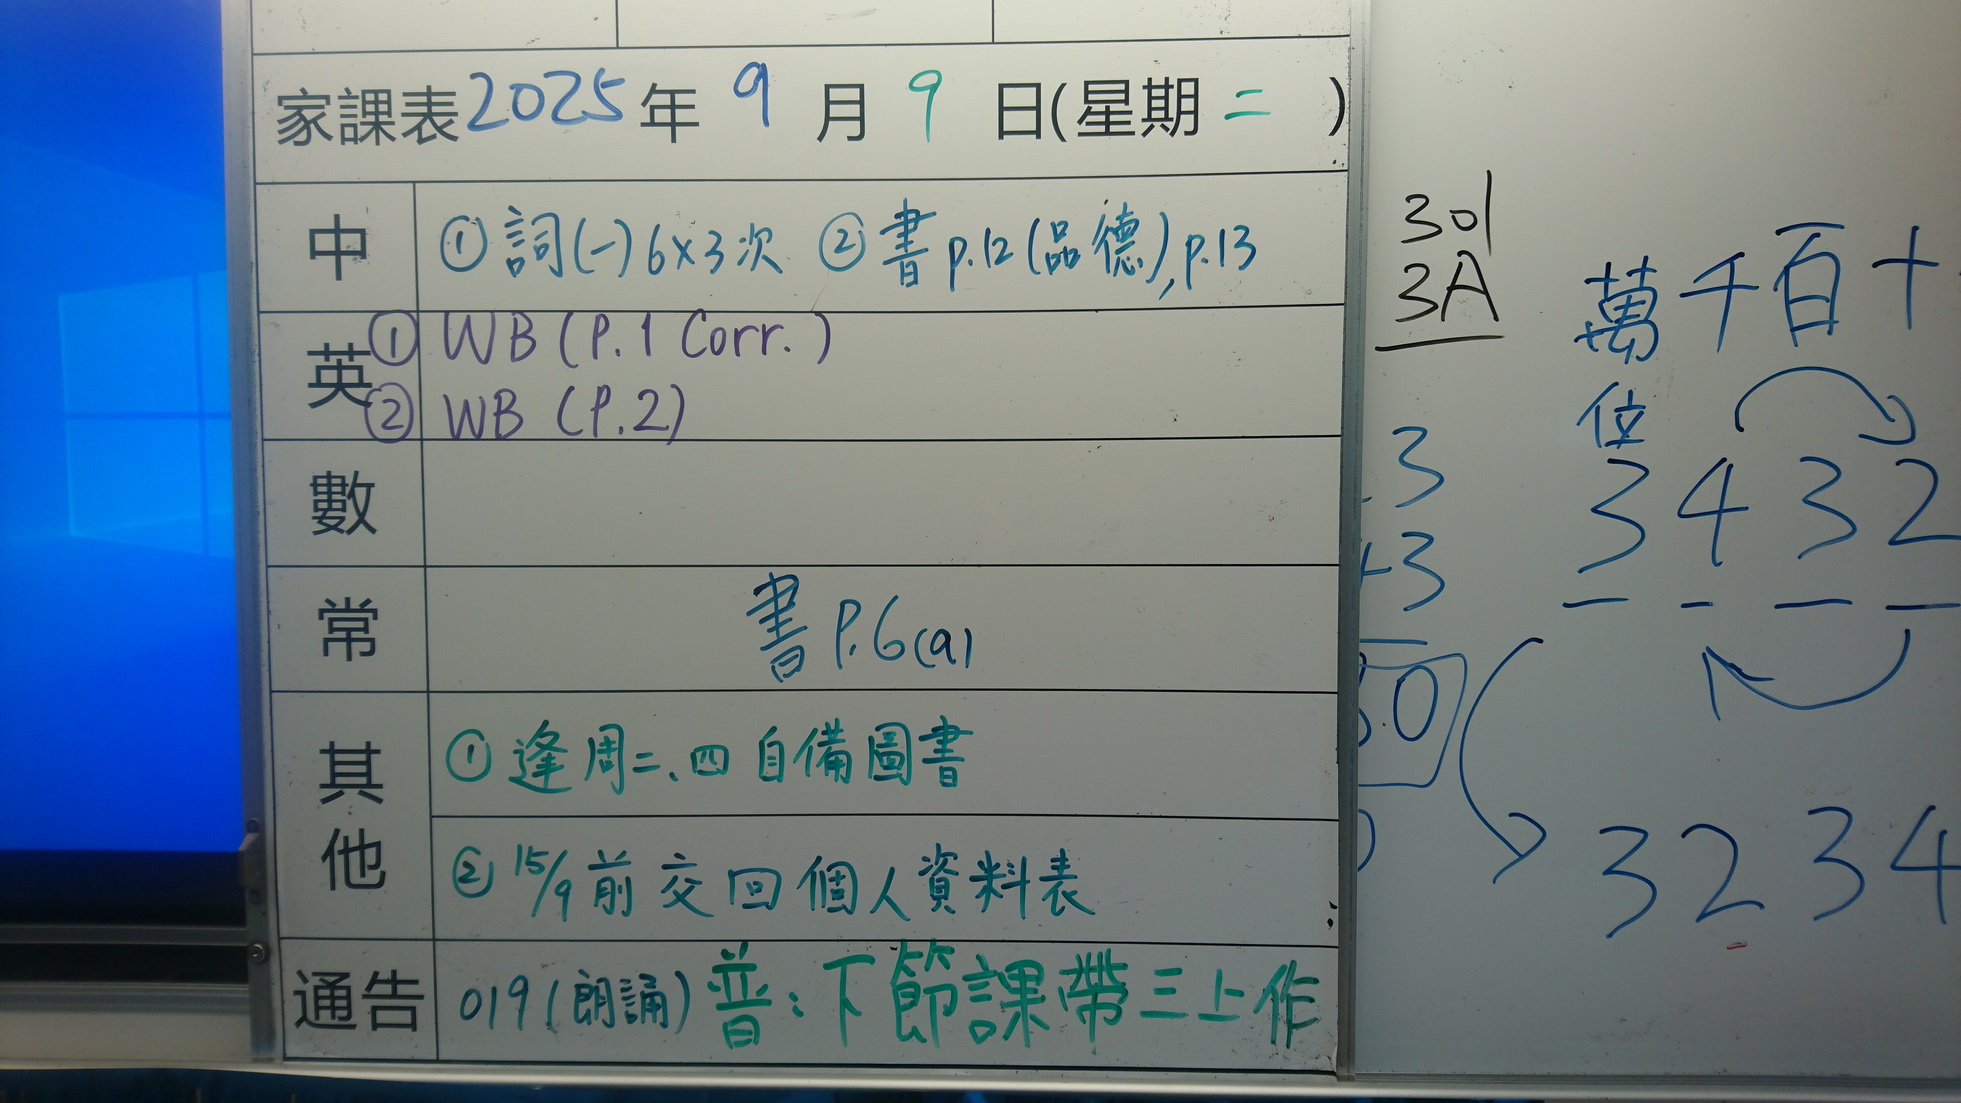 家課表2025年 9 月 9 日(星期二 )
中 ①詞(一)6x3次 ②書p.12(品德),p.13
英 ① WB (P.1 Corr.)
② WB (P.2)
數
常 書 P.6(a)
其他 ①逢周二、四自備圖書
② 15/9前交回個人資料表
通告 019(朗誦) 普:下節課帶三上作
301
3A
萬千百十
位
3432
3234
3
+3
30